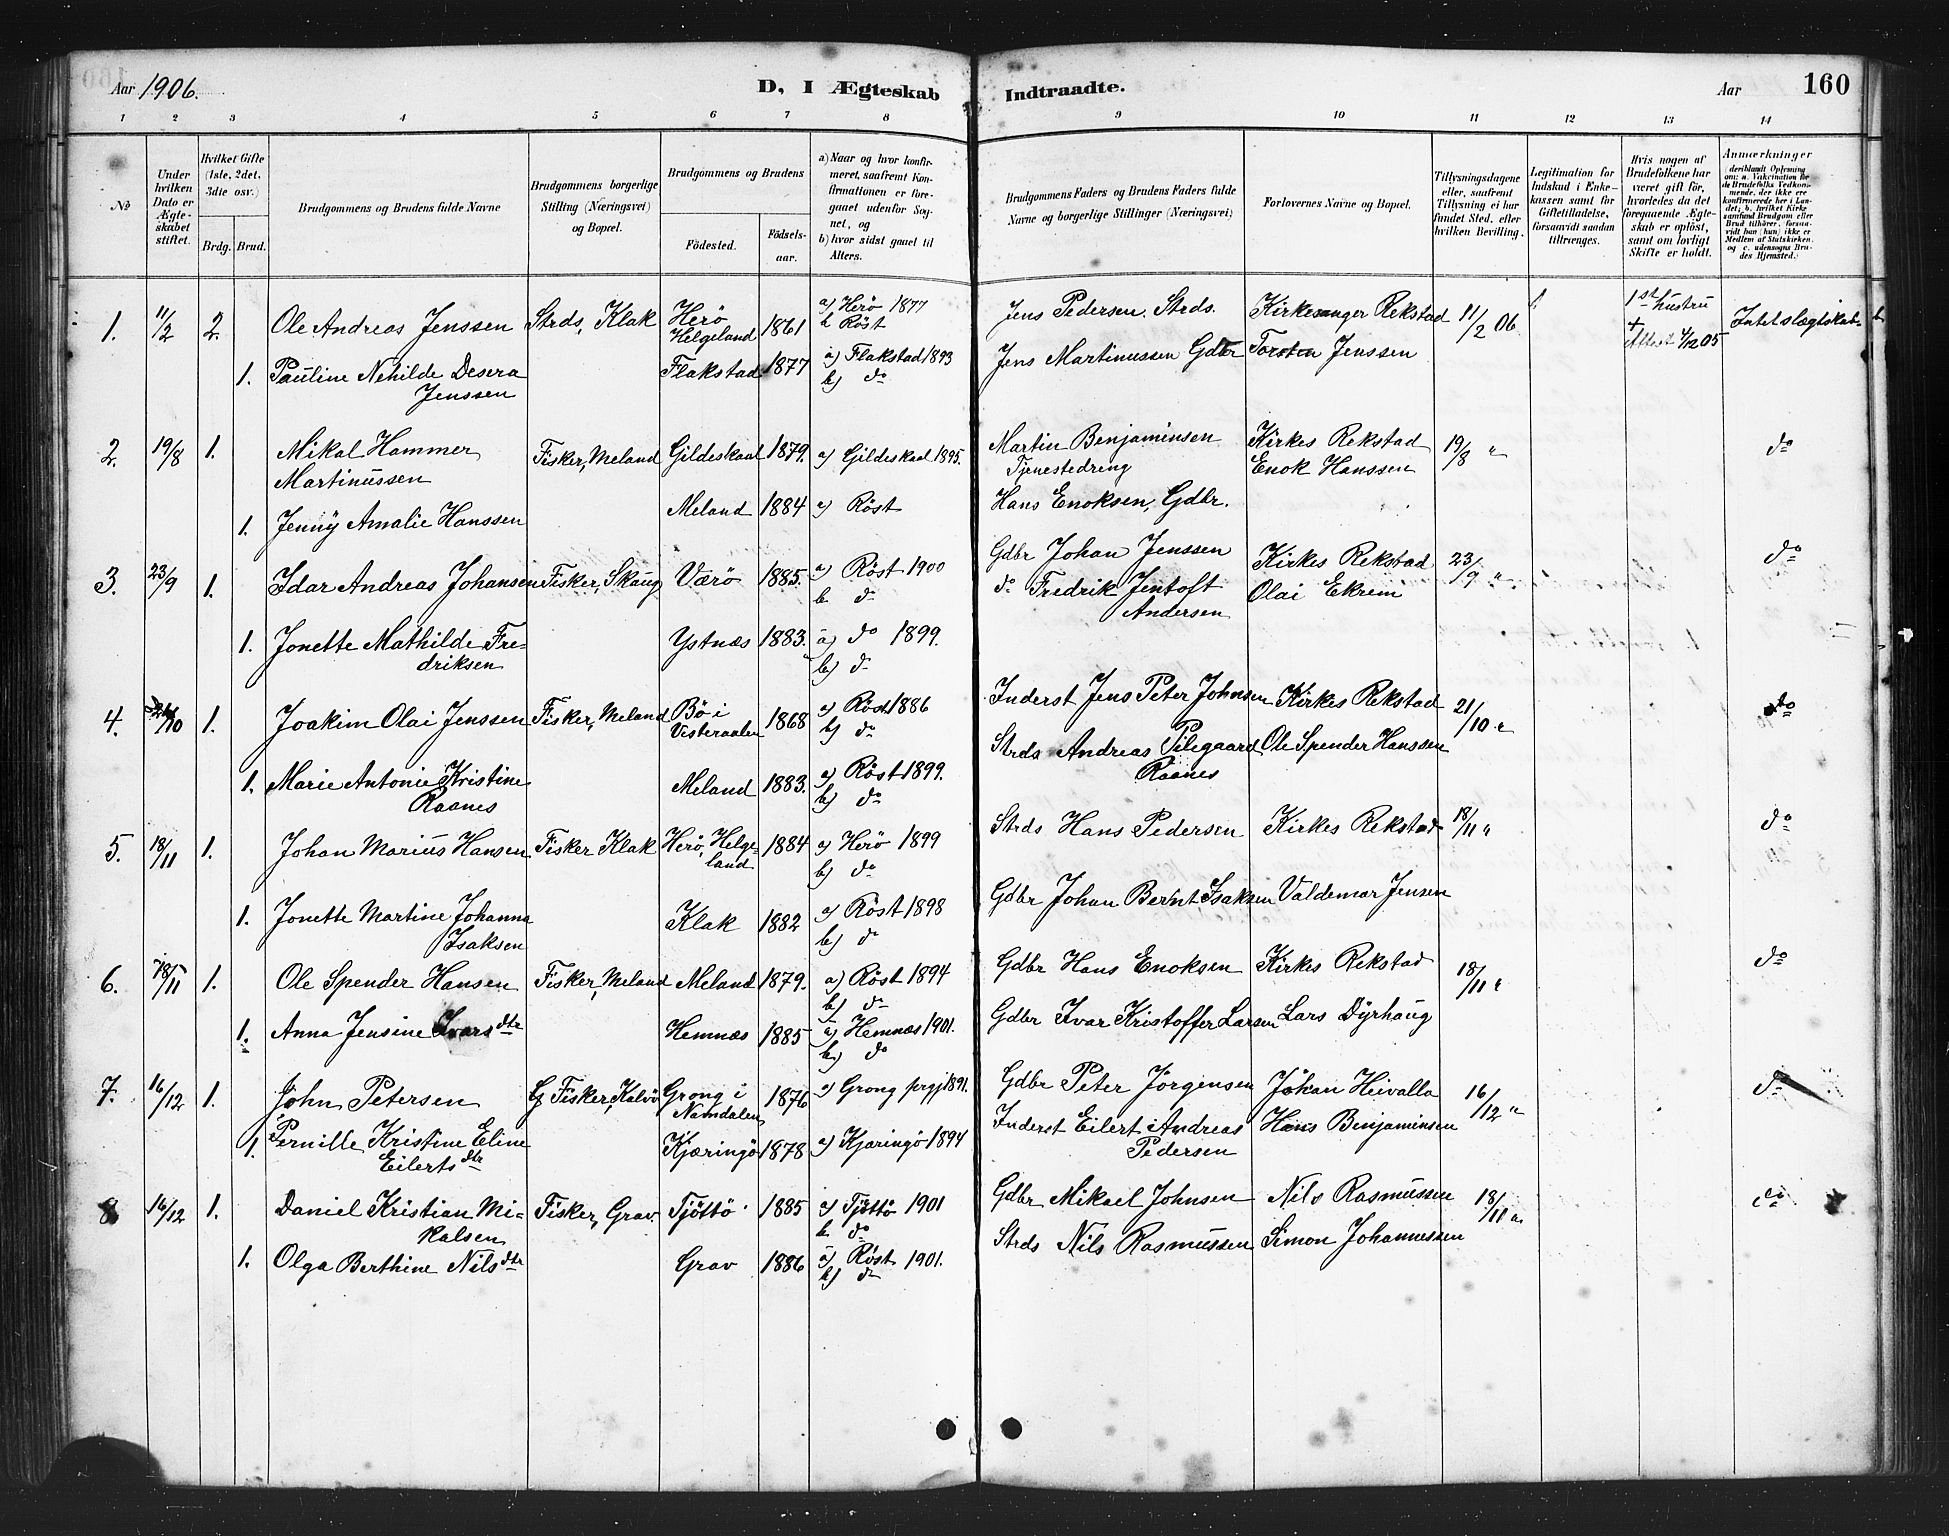 Aar 1906.
D, I Ægteskab
Indtraadte.
Aar
160
1 2 3 4 5 6 7 8 9 10 11 12 13 14
№
Under hvilken Dato er Ægte-skabet stiftet.
Hvilket Gifte (1ste, 2det, 3die osv.)
Brdg. Brud.
Brudgommens og Brudens fulde Navne
Brudgommens borgerlige Stilling (Næringsvei) og Bopæl.
Brudgommens og Brudens
Fødested.
Fødsels-aar.
a) Naar og hvor konfir-meret, saafremt Kon-firmationen er fore-gaaet udenfor Sog-net, og
b) hvor sidst gaaet til Alters.
Brudgommens Faders og Brudens Faders fulde Navne og borgerlige Stillinger (Næringsvei)
Forlovernes Navne og Bopæl.
Tillysningsdagene eller, saafremt Tillysning ei har fundet Sted, efter hvilken Bevilling.
Legitimation for Indskud i Enke-kassen samt for Giftetilladelse, forsaavidt saadan tiltrænges.
Hvis nogen af Brudefolkene har været gift før, hvorledes da det foregaaende Ægte-skab er opløst, samt om lovligt Skifte er holdt.
Anmærkninger (deriblandt Oplysning om: a. Vakcination for de Brudefolks Vedkom-mende, der ikke ere konfirmerede her i Lan-det; b. hvilket Kirke-samfund Brudgom eller Brud tilhører, forsaa-vidt han (hun) ikke er Medlem af Statskirken, og c. udensogns Bru-des Hjemsted.)
1. 11/2 2. Ole Andreas Jenssen Strds, Klak Herö Helgeland 1861 a) Herö 1877 b Röst Jens Pedersen. Strds. Kirkesanger Rekstad 11/2 06 1ste hustru + Attest 4/12 05 Intet slægtskab
1. Pauline Nehilde Desera Jenssen Flakstad 1877 a) Flakstad 1893 b) do Jens Martinussen Gdbr Torsten Jenssen
2. 19/8 1. Mikal Hammer Martinussen Fisker, Meland Gildeskaal 1879. a) Gildeskaal 1895. Martin Benjaminsen Tjenestedreng Kirkes Rekstad 19/8 " do
1. Jenny Amalie Hanssen Meland 1884 a) Röst Hans Enoksen, Gdbr. Enok Hanssen
3. 23/9 1. Idar Andreas Johansen Fisker, Skaug Værö 1885. a) Röst 1900 b do Gdbr Johan Jenssen Kirkes Rekstad 23/9 " do
1. Jonette Mathilde Fre-driksen Ystnæs 1883. a) do 1899. b) do do Fredrik Jentoft Andersen Olai Ekrem
4. 21/10 1. Joakim Olai Jenssen Fisker, Meland Bö i Vesteraalen 1868 a) Röst 1886 b) do Inderst Jens Peter Johnsen Kirkes Rekstad 21/10 " do
1. Marie Antonie Kristine Raanes Meland 1883. a) Röst 1899. b) do Strds Andreas Pilegaard Raanes Ole Spender Hanssen
5. 18/11 1. Johan Marius Hansen Fisker Klak Herö, Helge-land 1884 a) Herö 1899 b) do Strds Hans Pedersen Kirkes Rekstad 18/11 " do
1. Jonette Martine Johanna Isaksen Klak 1882 a) Röst 1898 b) do Gdbr Johan Bernt Isaksen Valdemar Jensen
6. 18/11 1. Ole Spender Hansen Fisker, Meland Meland 1879. a) Röst 1894 b) do Gdbr Hans Enoksen Kirkes Rekstad 18/11 " do
1. Anna Jensine Ivarsdtr Hemnæs 1885 a) Hemnæs 1901. b) do Gdbr Ivar Kristoffer Larsen Lars Dyrhaug
7. 16/12 1. John Petersen Fisker, Kalvö Grong i Namdalen 1876 a) Grong prgj 1891. Gdbr Peter Jörgensen Johan Heivalla 16/12 " do
1. Pernille Kristine Eline Eilertsdtr Kjæringö 1878 a) Kjæringö 1894 Inderst Eilert Andreas Pedersen Hans Benjaminsen
8 16/12 1. Daniel Kristian Mi-kalsen Fisker, Grav. Tjöttö 1885 a) Tjöttö 1901 b do Gdbr Mikael Johnsen Nils Rasmussen 18/11 " do
1. Olga Berthine Nilsdtr Grav 1886 a) Röst 1901. b) do Strds Nils Rasmussen Simon Johannessen